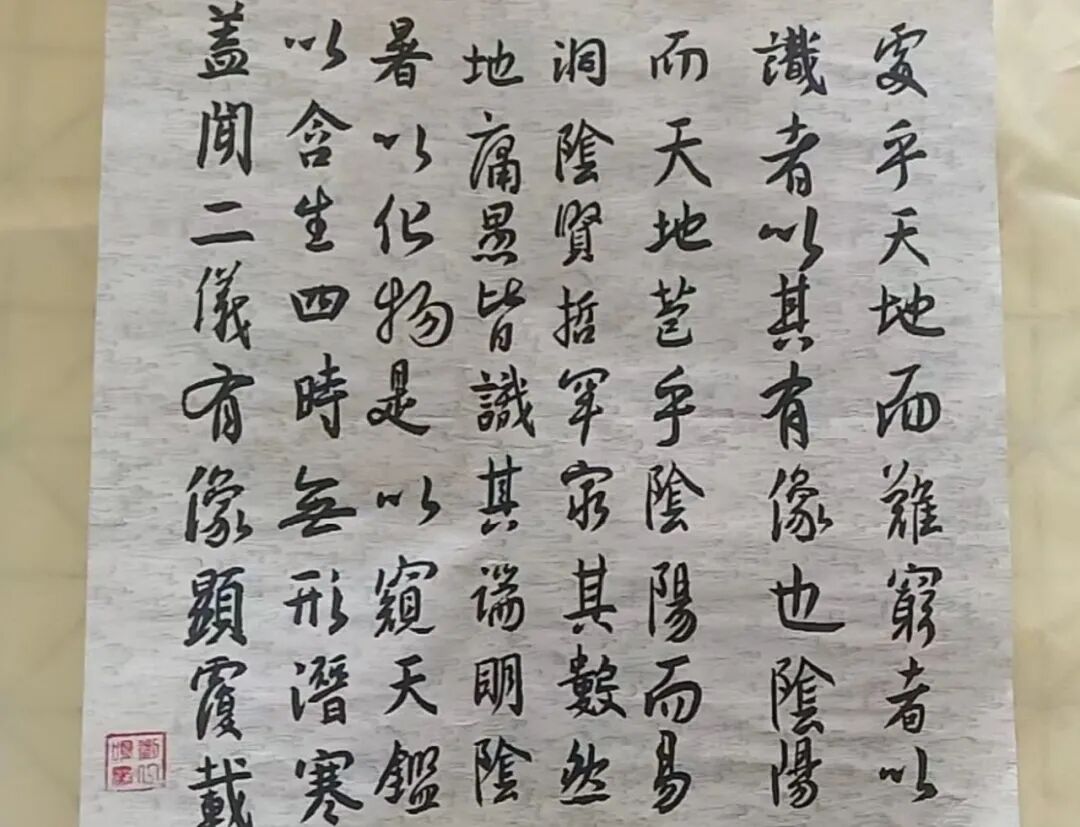 盖聞二儀有像顯覆載
以含生四時無形潛寒
暑以化物是以窺天鑑
地庸愚皆識其端明陰
洞陰賢哲罕窮其數然
而天地苞乎陰陽而易
識者以其有像也陰陽
處乎天地而難窮者以